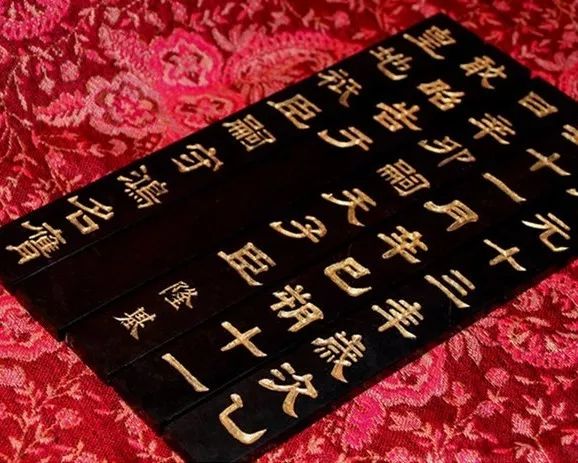 元十三年歲次乙
十一月辛巳朔十一
日辛卯嗣天子臣隆基
敢昭告于
皇地祇臣嗣守鴻名膺